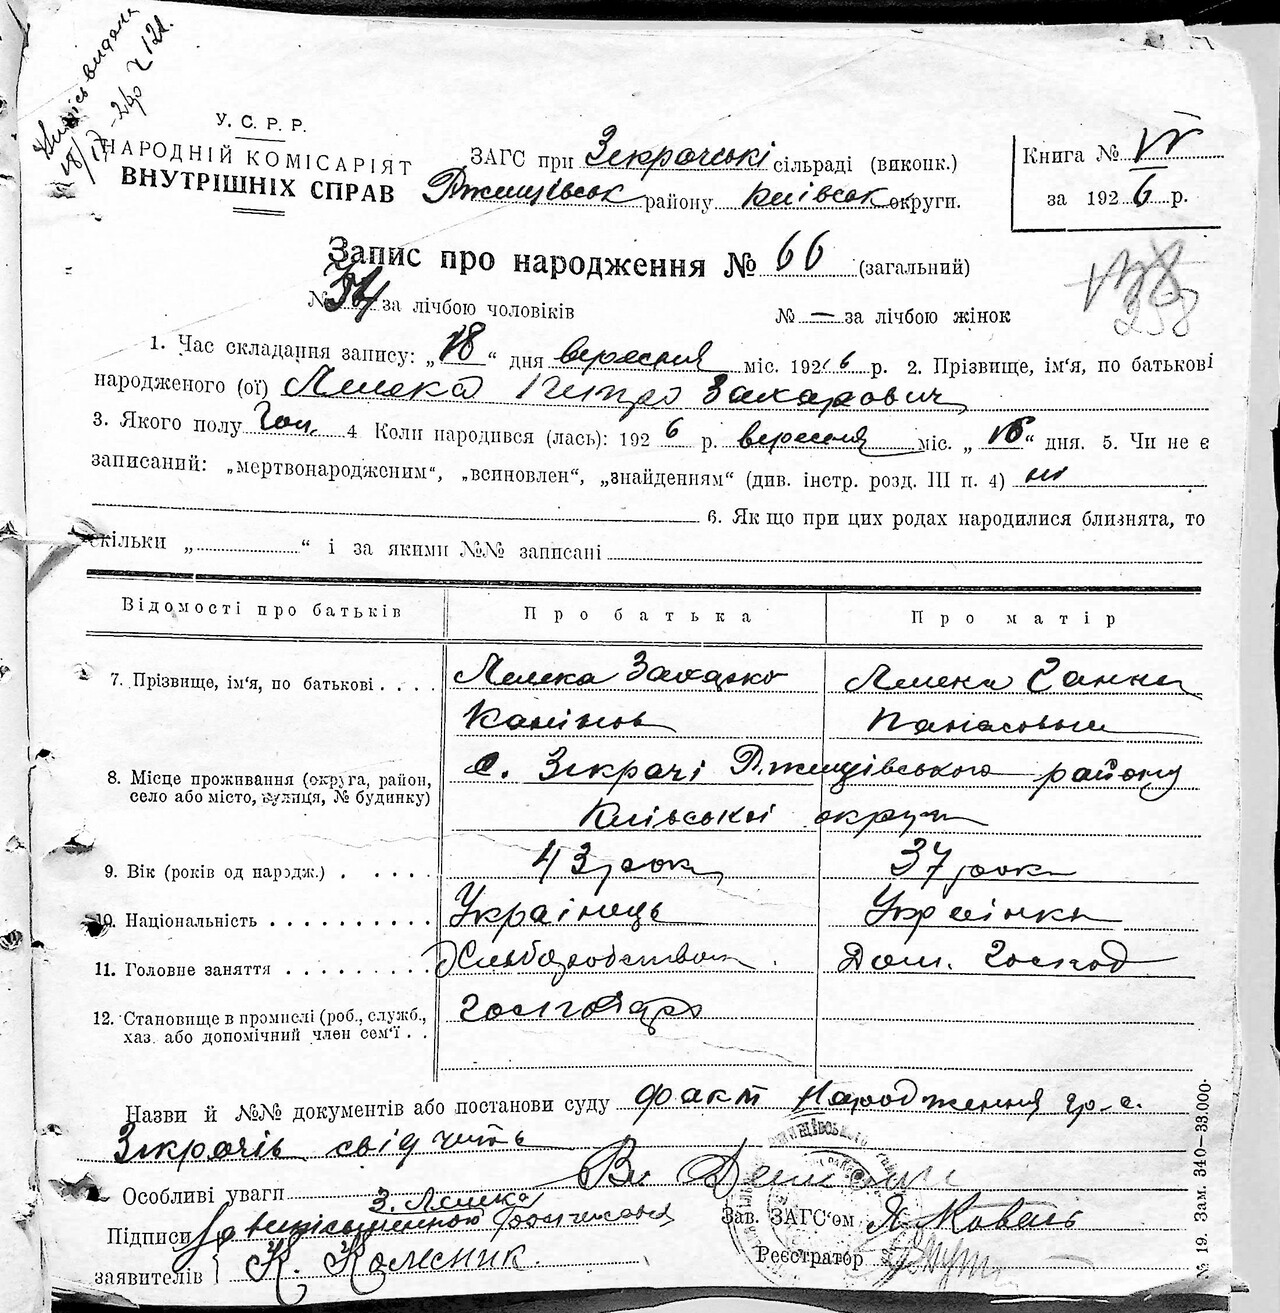 У. С. Р. Р.
НАРОДНІЙ КОМІСАРІЯТ
ВНУТРІШНІХ СПРАВ
ЗАГС при Зікрачські сільраді (виконк.)
Ржищівськ району Київськ округи.
Книга № VI
за 1926 р.
Запис про народження № 66 (загальний)
№ 34 за лічбою чоловіків № — за лічбою жінок
1. Час складання запису: „18“ дня вересня міс. 1926 р. 2. Прізвище, ім'я, по батькові
народженого (ої) Лелека Петро Захарович
3. Якого полу чол. 4 Коли народився (лась): 1926 р. вересня міс. „16“ дня. 5. Чи не є
записаний: „мертвонародженим“, „всиновлен“, „знайденням“ (див. інстр. розд. III п. 4) ні
6. Як що при цих родах народилися близнята, то
скільки „ “ і за якими №№ записані
Відомості про батьків Про батька Про матір
7. Прізвище, ім'я, по батькові . . . . Лелека Захарко Лелека Ганна
Панасовна
8. Місце проживання (округа, район, с. Зікрачі Ржищівського району
село або місто, вулиця, № будинку) Київської округи
9. Вік (років од народж.) . . . . . 43 рок 37 рок
10. Національність . . . . . . . . . . Українець Українка
11. Головне заняття . . . . . . . . . Хліборобство Дом. господ
12. Становище в промислі (роб., служб., господар
хаз. або допомічний член сем'ї . .
Назви й №№ документів або постанови суду факт народження гр. с.
Зікрачів свідчить
Особливі уваги
З. Лелека
Підписи
заявителів К. Колесник.
Зав. ЗАГС'ом Коваль
Реєстратор
№ 19. Зам. 340—33.000.